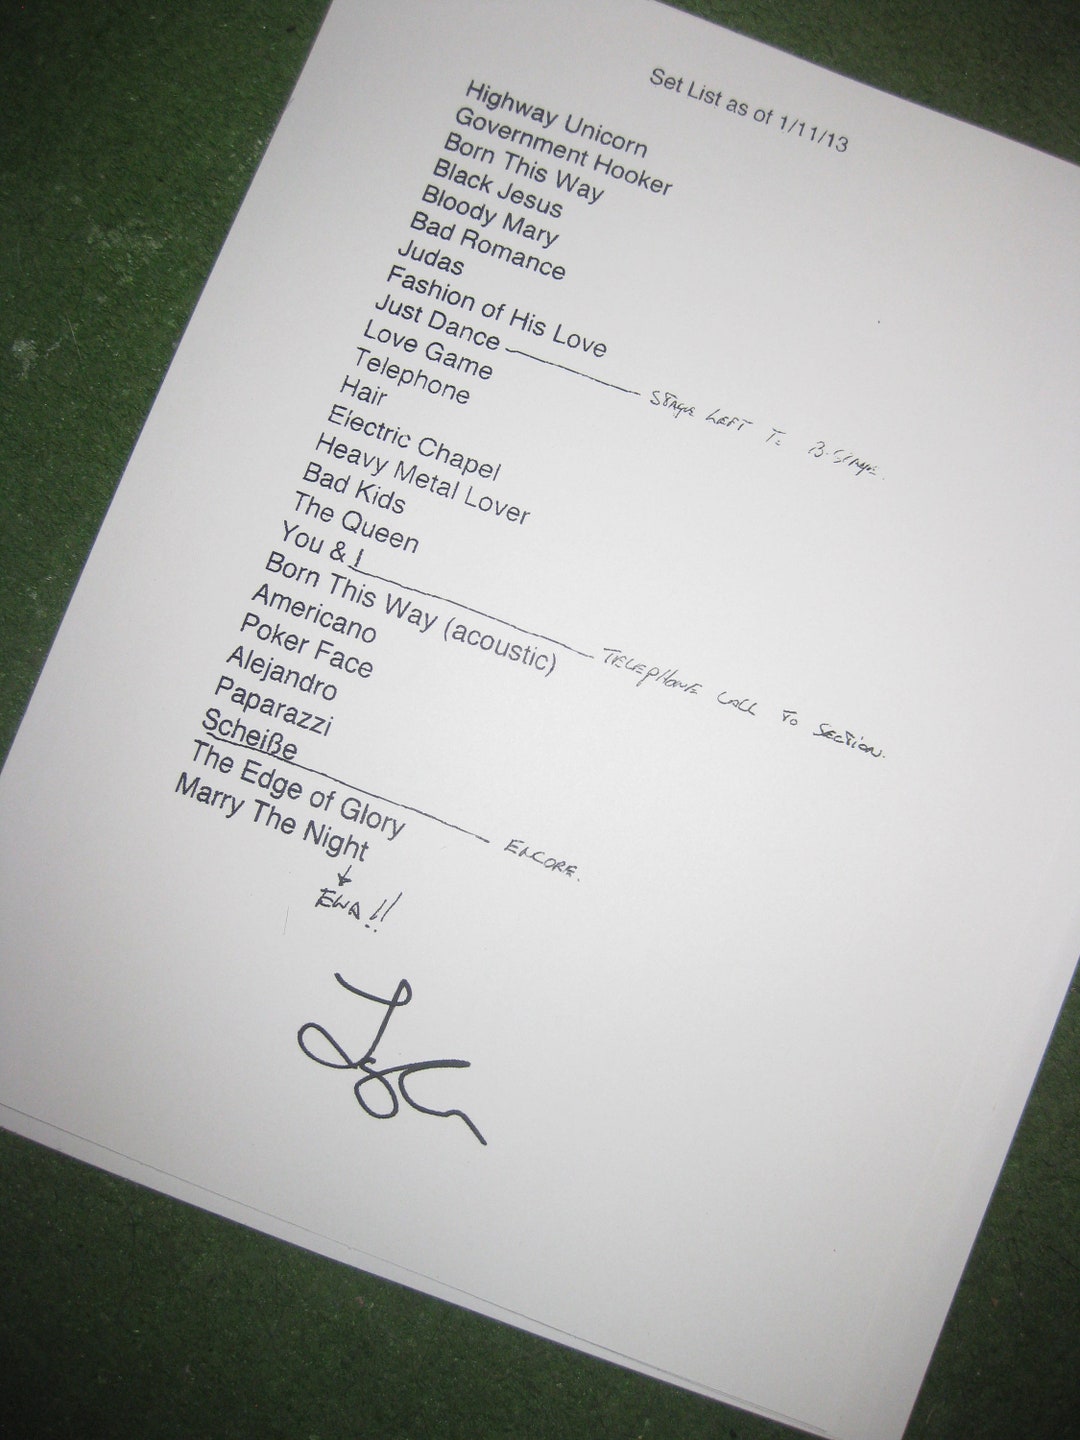 Set List as of 1/11/13
Highway Unicorn
Government Hooker
Born This Way
Black Jesus
Bloody Mary
Bad Romance
Judas
Fashion of His Love
Just Dance STAGE LEFT TO B-STAGE.
Love Game
Telephone
Hair
Electric Chapel
Heavy Metal Lover
Bad Kids
The Queen
You & I TELEPHONE CALL TO SECTION.
Born This Way (acoustic)
Americano
Poker Face
Alejandro
Paparazzi
Scheiße ENCORE.
The Edge of Glory
Marry The Night
↓
!!